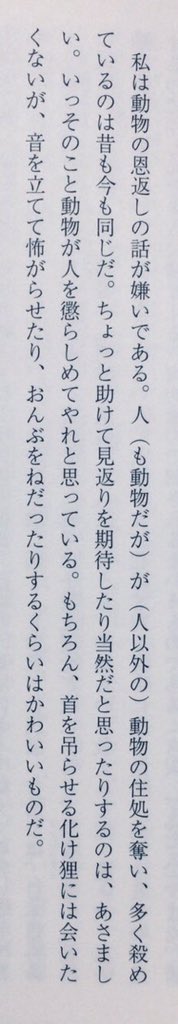 私は動物の恩返しの話が嫌いである。人（も動物だが）が（人以外の）動物の住処を奪い、多く殺め
ているのは昔も今も同じだ。ちょっと助けて見返りを期待したり当然だと思ったりするのは、あさまし
い。いっそのこと動物が人を懲らしめてやれと思っている。もちろん、首を吊らせる化け狸には会いた
くないが、音を立てて怖がらせたり、おんぶをねだったりするくらいはかわいいものだ。